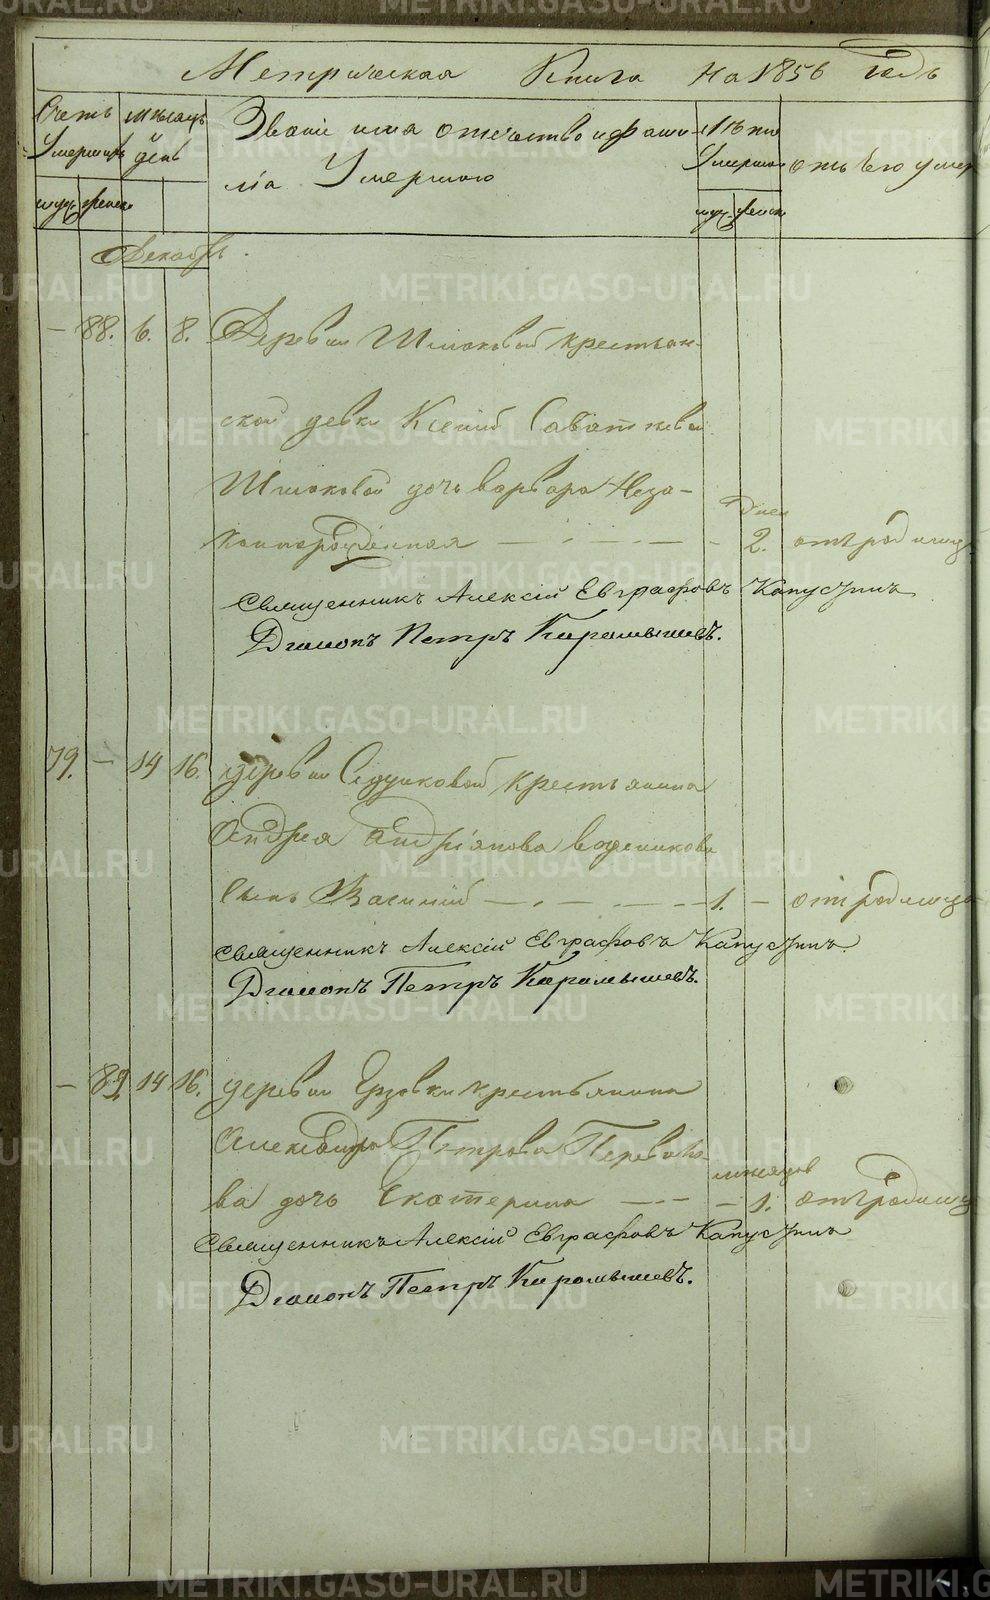 Метрическая Книга На 1856 Годъ
Счетъ Умершихъ
муж женск
мѣсяцъ день
Званіе имя отчество и фами
лія Умершаго
Лѣта Умерша
муж женск
отъ чего умер
Декабрь
— 88. 6. 8. Деревни Шмаковой крестьян-
ской девки Ксеніи Саватѣевой
Шмаковой дочь Варвара Неза-
коннорожденная — — — Дней 2. отъ родимца
Священникъ Алексій Евграфовъ Капустинъ
Діаконъ Петръ Карамышевъ.
79. — 14 16. деревни Седунковой крестьянина
Андрея Андріянова Воденикова
Сынъ Василій — — — 1. — отъ родимца
Священникъ Алексій Евграфовъ Капустинъ
Діаконъ Петръ Карамышевъ.
— 89. 14 16. деревни Ерзовки крестьянина
Александра Петрова Перевало-
ва дочь Екатерина — — — мѣсяцов 1. отъ родимца
Священникъ Алексій Евграфовъ Капустинъ
Діаконъ Петръ Карамышевъ.
METRIKI.GASO-URAL.RU